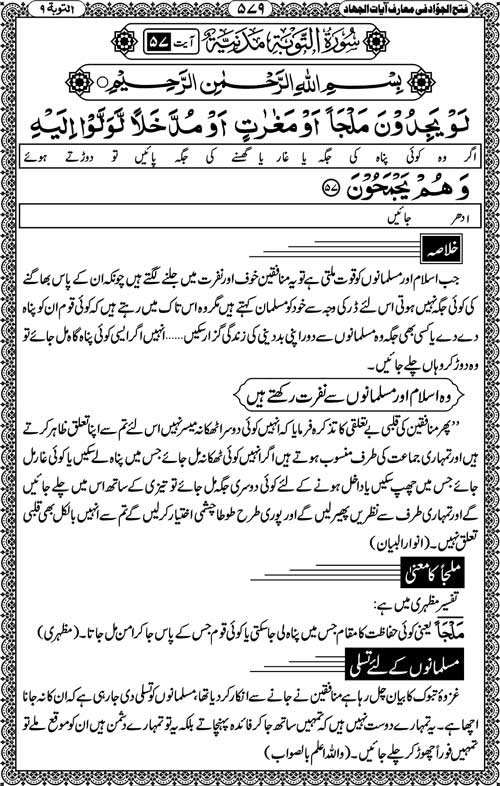 فتح الجوّاد فی معارف آیات الجهاد ۵۷۹ التوبة ۹
سُوْرَةُ التَّوْبَةِ مَدَنِيَّةٌ آیت ۵۷
بِسْمِ اللهِ الرَّحْمٰنِ الرَّحِيْمِ
لَوْ يَجِدُوْنَ مَلْجَاً اَوْ مَغٰرٰتٍ اَوْ مُدَّخَلًا لَّوَلَّوْا اِلَيْهِ
اگر وہ کوئی پناہ کی جگہ یا غار یا گھسنے کی جگہ پائیں تو دوڑتے ہوئے
وَهُمْ يَجْمَحُوْنَ ۵۷
ادھر جائیں
خلاصہ
جب اسلام اور مسلمانوں کو قوت ملتی ہے تو یہ منافقین خوف اور نفرت میں جلنے لگتے ہیں چونکہ ان کے پاس بھاگنے
کی کوئی جگہ نہیں ہوتی اس لئے ڈر کی وجہ سے خود کو مسلمان کہتے ہیں مگر وہ اس تاک میں رہتے ہیں کہ کوئی قوم ان کو پناہ
دے دے یا کسی بھی جگہ وہ مسلمانوں سے دور اپنی بددینی کی زندگی گزار سکیں......انہیں اگر ایسی کوئی پناہ گاہ مل جائے تو
وہ دوڑ کر وہاں چلے جائیں۔
وہ اسلام اور مسلمانوں سے نفرت رکھتے ہیں
’’پھر منافقین کی قلبی بے تعلقی کا تذکرہ فرمایا کہ انہیں کوئی دوسرا ٹھکانہ میسر نہیں اس لئے تم سے اپنا تعلق ظاہر کرتے
ہیں اور تمہاری جماعت کی طرف منسوب ہوتے ہیں اگر انہیں کوئی ٹھکانہ مل جائے جس میں پناہ لے سکیں یا کوئی غار مل
جائے جس میں چھپ سکیں یا داخل ہونے کے لئے کوئی دوسری جگہ مل جائے تو تیزی کے ساتھ اس میں چلے جائیں
گے اور تمہاری طرف سے نظریں پھیر لیں گے اور پوری طرح طوطا چشمی اختیار کر لیں گے تم سے انہیں بالکل بھی قلبی
تعلق نہیں۔ (انوار البیان)
ملجأ کا معنیٰ
تفسیر مظہری میں ہے:
مَلْجَاً یعنی کوئی حفاظت کا مقام جس میں پناہ لی جا سکتی یا کوئی قوم جس کے پاس جا کر امن مل جاتا۔ (مظہری)
مسلمانوں کے لئے تسلی
غزوۂ تبوک کا بیان چل رہا ہے منافقین نے جانے سے انکار کر دیا تھا، مسلمانوں کو تسلی دی جا رہی ہے کہ ان کا نہ جانا
اچھا ہے۔ یہ تمہارے دوست نہیں ہیں کہ تمہیں ساتھ جا کر فائدہ پہنچاتے بلکہ یہ تو تمہارے دشمن ہیں ان کو موقع ملے تو
تمہیں فوراً چھوڑ کر چلے جائیں۔ (واللہ اعلم بالصواب)